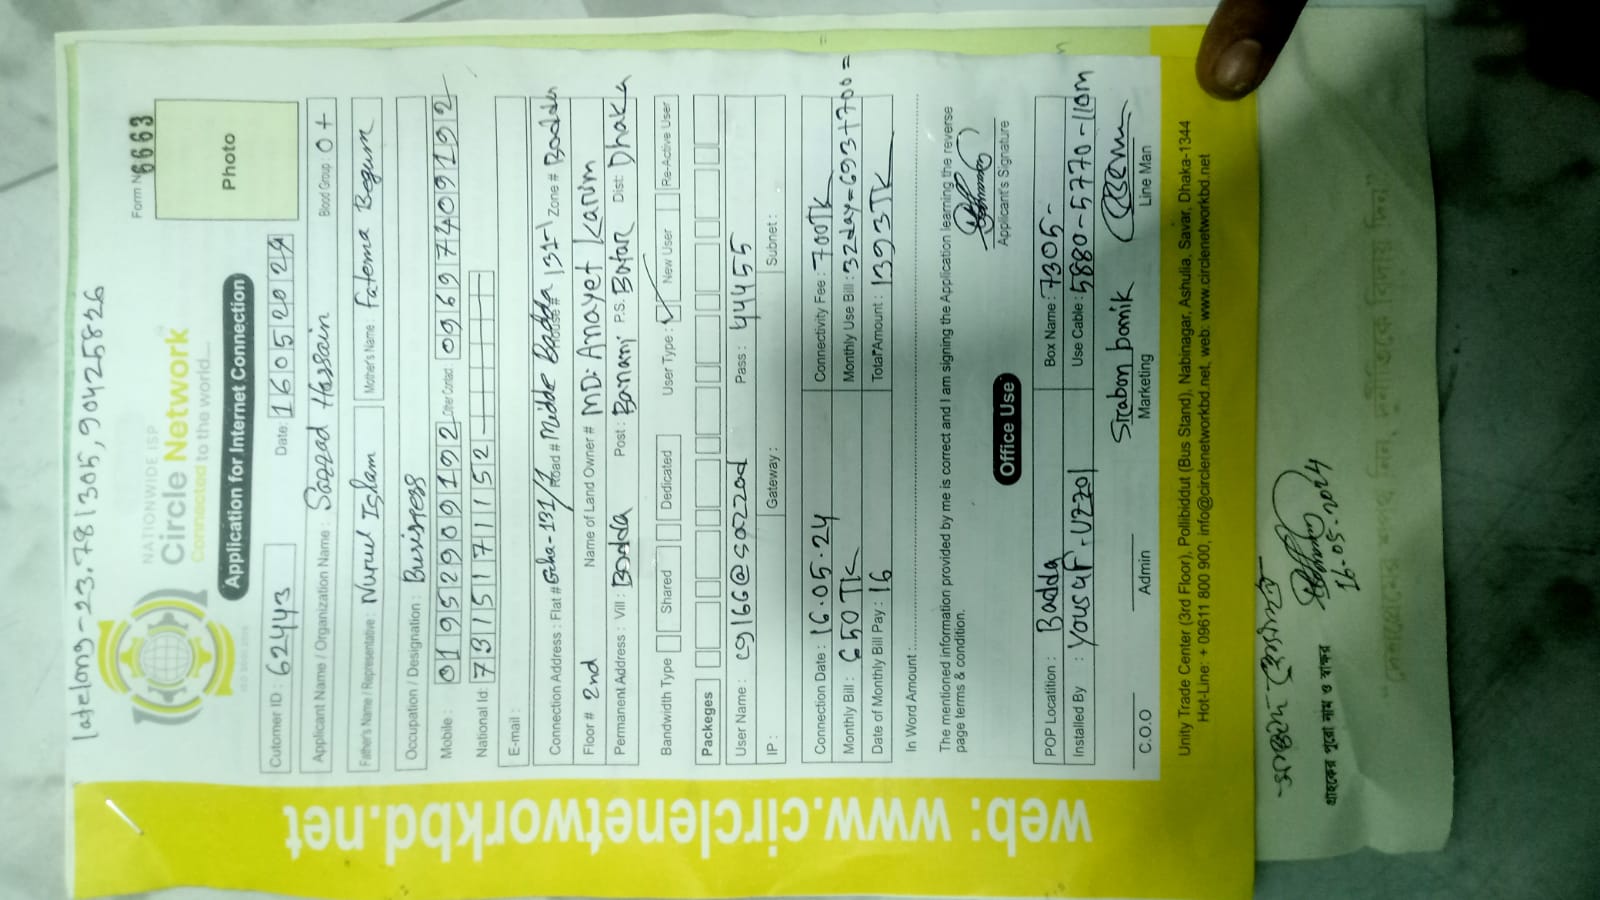 latelong-23.781305,90.425826
Form No 6663
NATIONWIDE ISP
Circle Network
Connected to the world...
Photo
Application for Internet Connection
Cutomer ID : 62443 Date: 16052024
Applicant Name / Organization Name : Sazzad Hossain Blood Group : O+
Father's Name / Representative : Nurul Islam Mother's Name : Fatema Begum
Occupation / Designation : Business
Mobile : 01952909192 Other Contact 09697409192
National Id: 7315171152
E-mail :
Connection Address : Flat # Gha-131/1 Road # Middle Badda House # 131-1 Zone # Badda
Floor # 2nd Name of Land Owner # MD: Anayet Karim
Permanent Address : Vill : Badda Post : Banani P.S. Botar Dist: Dhaka
Bandwidth Type Shared Dedicated User Type : New User Re-Active User
Packeges
User Name : cg166@sazzad Pass : 44455
IP : Gateway : Subnet :
Connection Date : 16.05.24 Connectivity Fee : 700TK
Monthly Bill : 650TK Monthly Use Bill : 32day=693+700=
Date of Monthly Bill Pay : 16 Total Amount : 1393TK
In Word Amount :
The mentioned information provided by me is correct and I am signing the Application learning the reverse
page terms & condition.
Applicant's Signature
Office Use
POP Locatition : Badda Box Name : 7305-
Installed By : Yousuf, Uzzol Use Cable : 5880-5770-110m
Srabon bomik
C.O.O Admin Marketing Line Man
Unity Trade Center (3rd Floor), Pollibiddut (Bus Stand), Nabinagar, Ashulia, Savar, Dhaka-1344
Hot-Line: + 09611 800 900, info@circlenetworkbd.net, web: www.circlenetworkbd.net
web: www.circlenetworkbd.net
সাজ্জাদ হোসেন
গ্রাহকের পুরো নাম ও স্বাক্ষর
16-05-2024